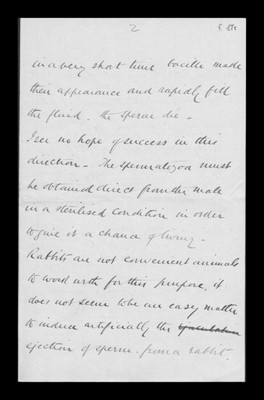 2
in a very short time bacilli made
their appearance and rapidly fill
the fluid. The sperms die –
I see no hope of success in this
direction – The spermatozoa must
be obtained direct from the male
in a sterilised condition in order
to give it a chance of living –
Rabbits are not convenient animals
to work with for this purpose, it
does not seem to be an easy matter
to induce artificially the
ejection of sperm from a rabbit.